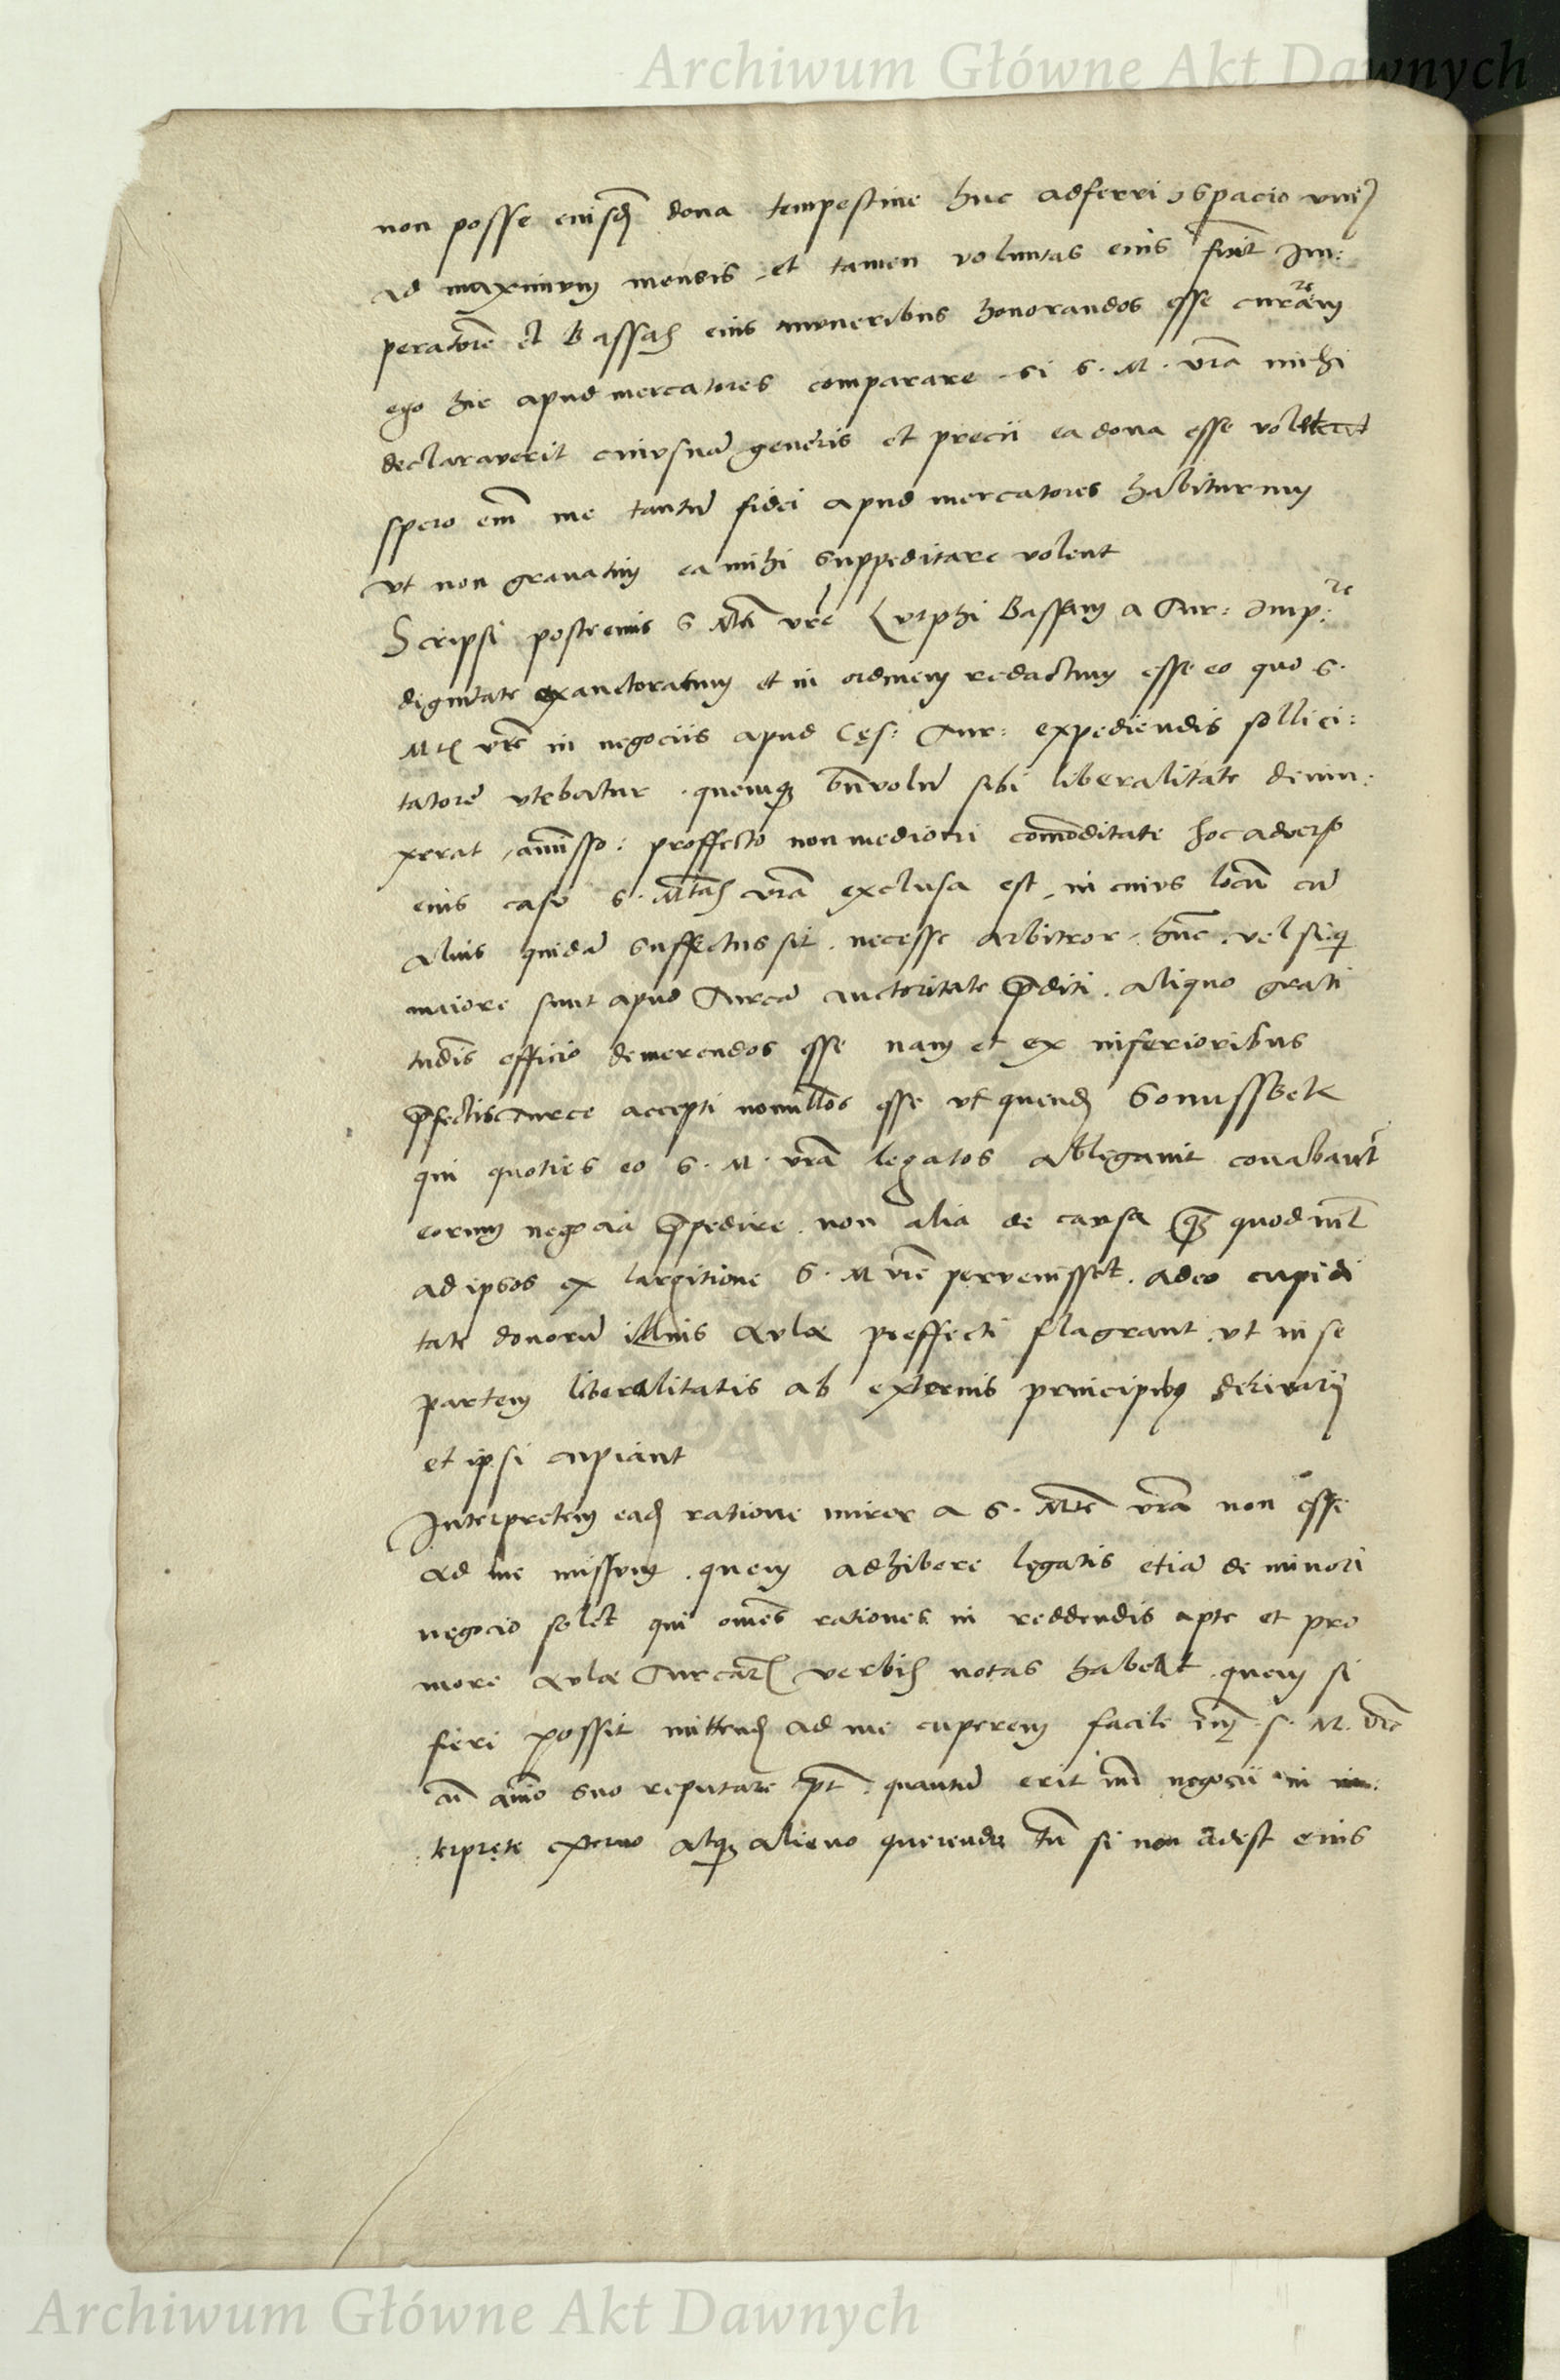 Archiwum Główne Akt Dawnych
non posse eiusd dona tempestive huc adferri spacio unius
ad maximum mensis, et tamen voluntas eius fuit Im:
peratorẽ et Bassas eius muneribus honorandos esse curarem
ego hic apud mercatores comparare si S. M. vrã mihi
declaraverit cuiusnã generis et precii ea dona esse volet
spero em̃ me tantũ fidei apud mercatores habiturum
ut non gravatim ea mihi suppeditare volent
Scripsi postremis S Mti vrẽ Lutphi Bassam a Tur: Imp:re
dignitate exauctoratum et in ordinem redactum esse eo quo S.
Mts vrẽ in negociis apud Cęs: Tur: expediendis sollici:
tatorẽ utebatur. quemq benivolũ sibi liberalitate devin:
xerat, amisso: proffecto non mediocri comoditate hoc adverso
eius casu S. Mtas vrã exclusa est, in cuius locũ cũ
alius quidã suffectus sit. necesse arbitror, hũc, vel siq
maiore sunt apud Turcã auctoritate p̃diti. aliquo grati
tudis officio demerendos esse nam et ex inferioribus
p̃fectis Turce accepi nonullos esse ut quend Sonussbek
qui quoties eo S. M. vrã legatos ablegavit conabant
eorum negocia p̃pedire. non alia de causa q̃ quod nil
ad ipsos ex largitione S. M vrẽ pervenisset. adeo cupidi
tate donorũ illius Aulæ preffecti flagrant, ut in se
partem liberalitatis ab externis principibus derivari
et ipsi cupiant
Interpretem ead ratione miror a S. Mte vrã non esse
ad me missum. quem adhibere legatis etiã de minori
negocio solet qui omẽs rationes in reddendis apte et pro
more Aulæ Turcar verbis notas habet. quem si
fieri possit mittend ad me cuperem facile em̃ S. M. vrã
cũ aĩo suo reputare pt. quantũ erit mi negocii in in:
terprete externo atq alieno querendo tũ si non adest eius
Archiwum Główne Akt Dawnych